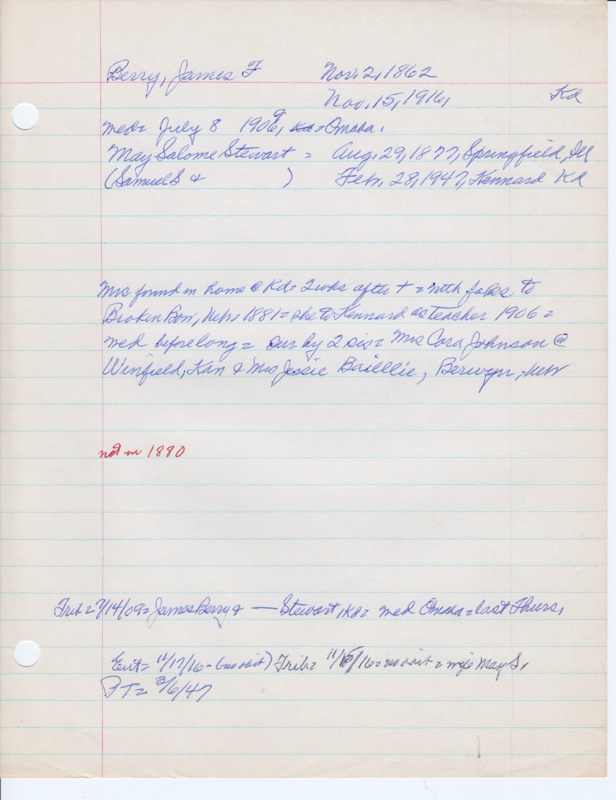 Berry, James F Nov. 2, 1862
Nov. 15, 1916, Kd
med= July 8 1909, = Omaha.
May Salome Stewart = Aug. 29, 1877, Springfield, Ill
(Samuel S & ) Feb. 28, 1947, Kennard Kd
Mrs found in home @ Kd= 2 wks after + = with folks to
Broken Bow, Neb= 1881= she to Kennard as teacher 1906 =
med before long = sur by 2 sis= Mrs Cora Johnson @
Winfield, Kan & Mrs Jessie Baillie, Berwyn, Neb
not in 1880
Trib= 7/14/09= James Berry & — Stewart, Kd= med Omaha= last Thurs.
Ent= 11/17/16 - (no obit) Trib= 11/16= no obit = wife May S.
PT= 3/6/47